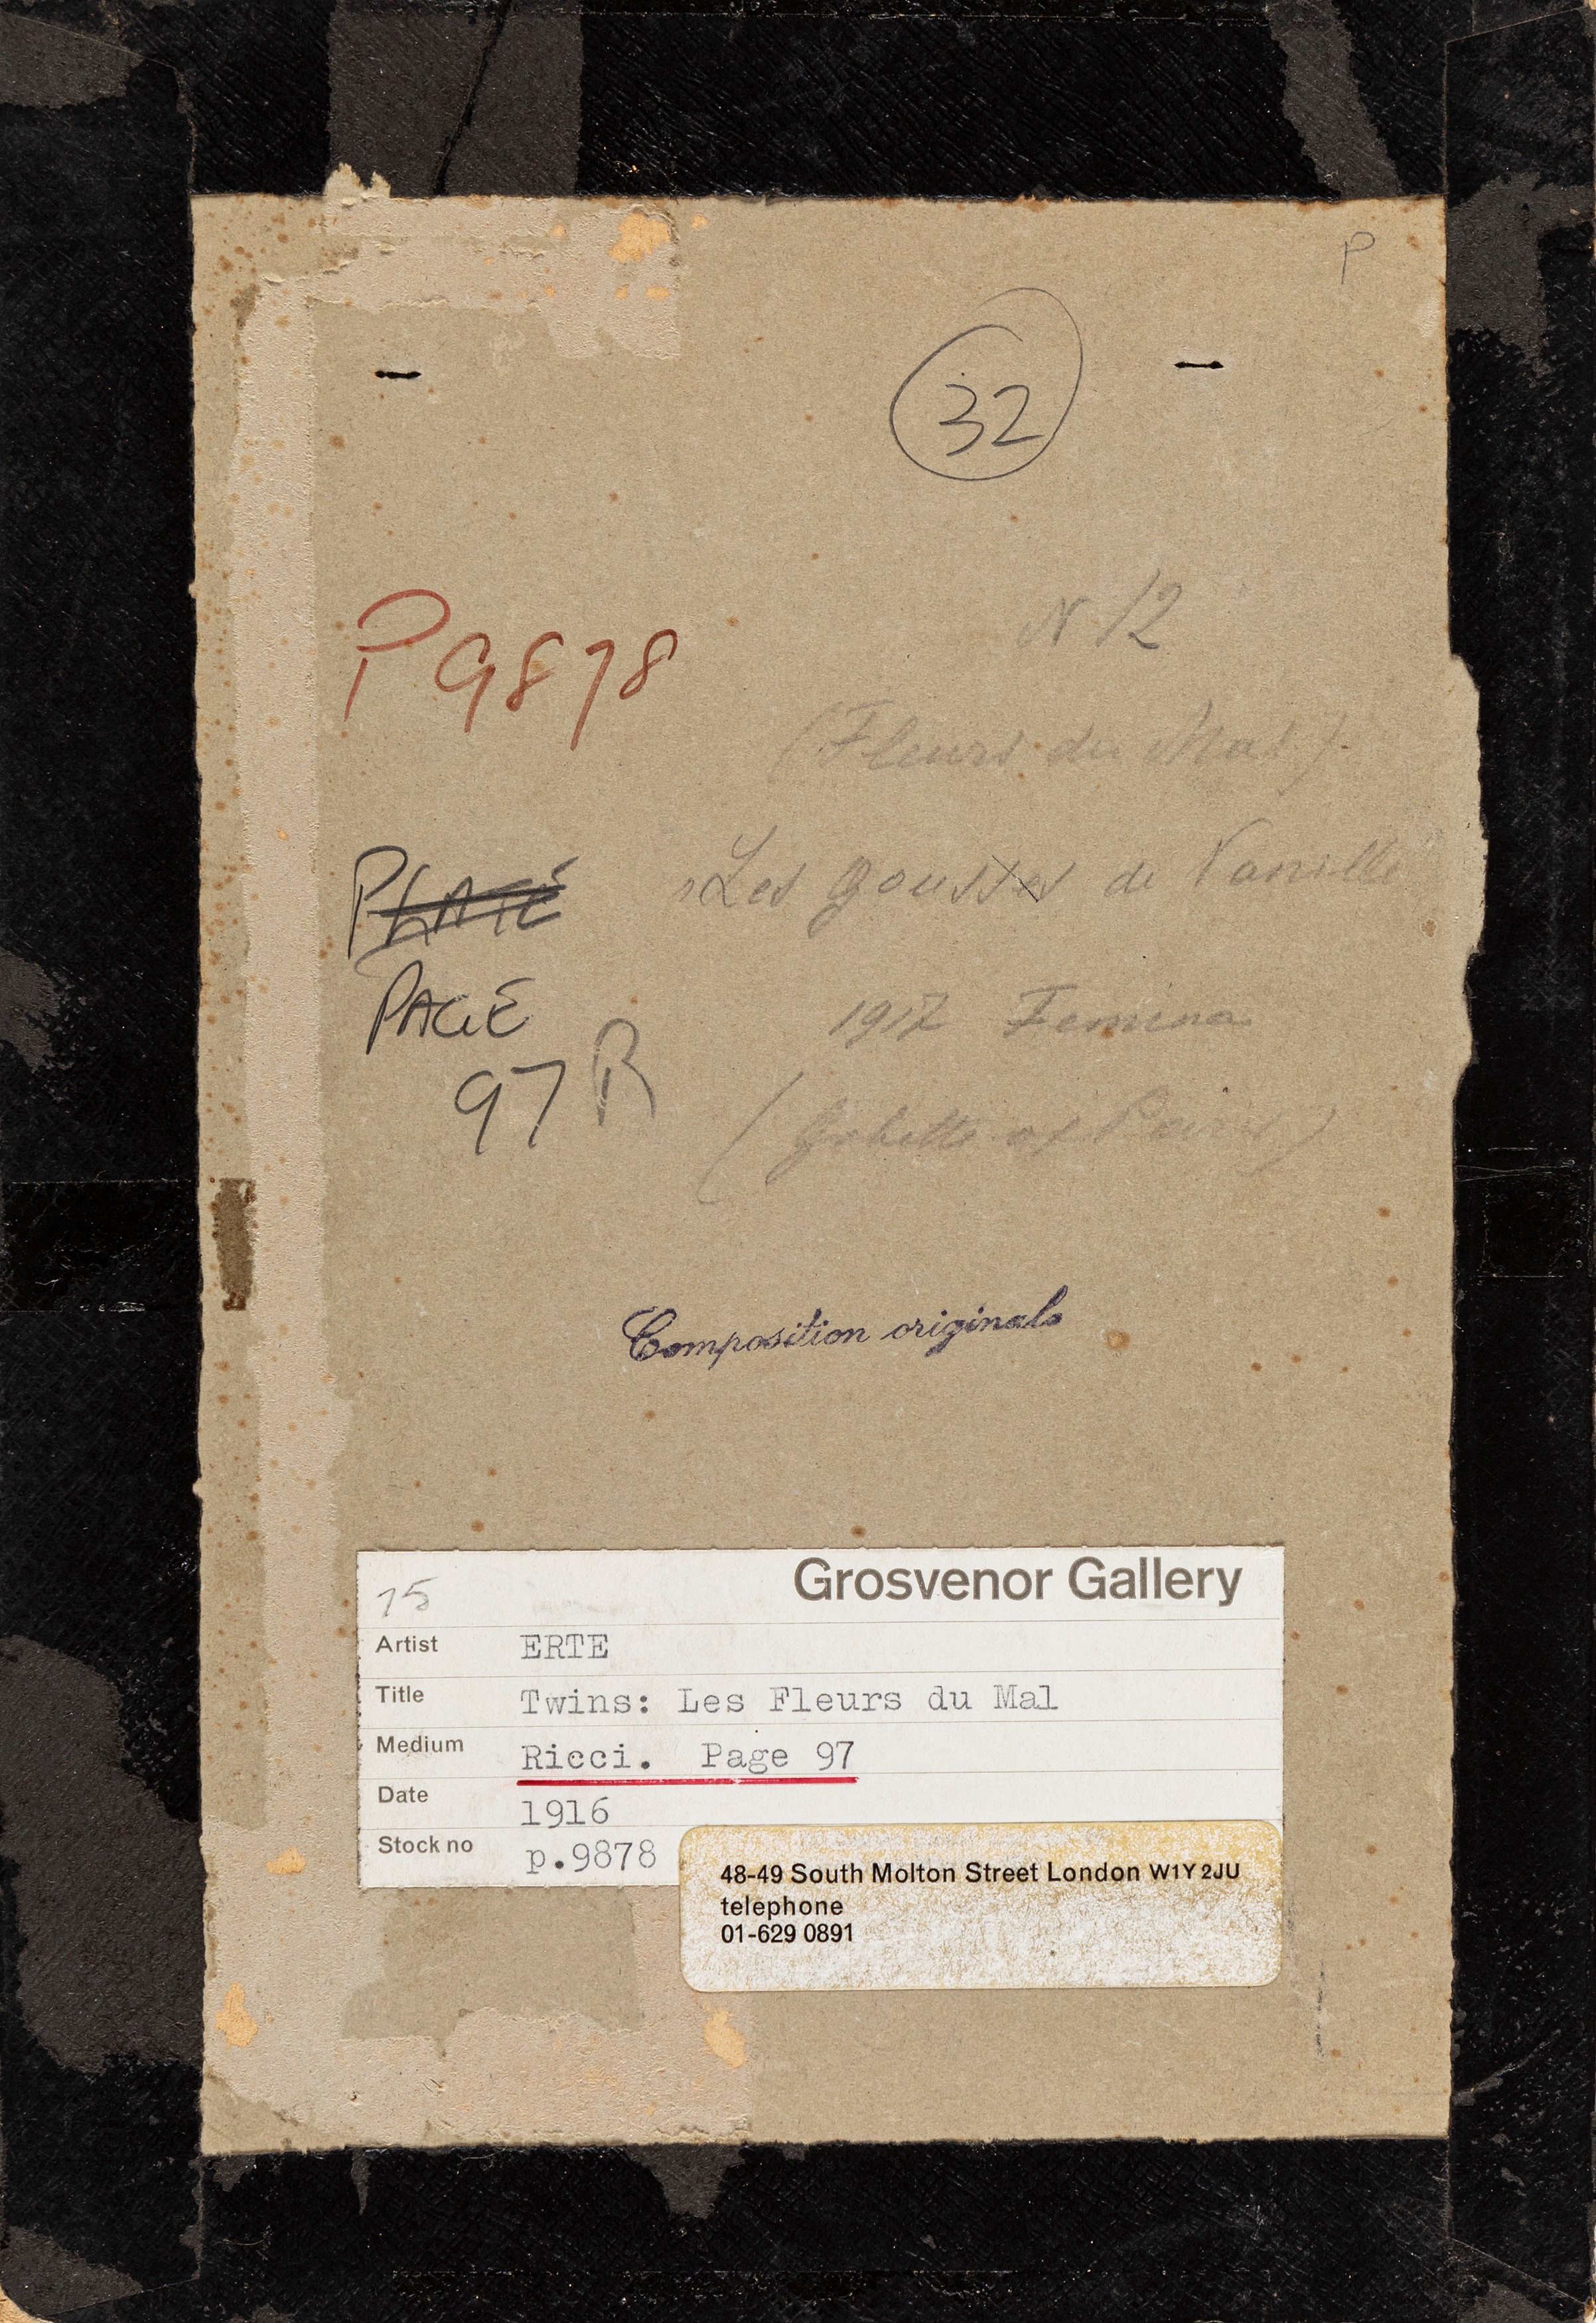 P
32
P9878
N 12
(Fleurs du Mal)
PLACE
"Les gousses de Vanille"
PAGE
1917 Femina
97 R
Composition originale
Grosvenor Gallery
75
Artist ERTE
Title Twins: Les Fleurs du Mal
Medium Ricci. Page 97
Date 1916
Stock no p.9878
48-49 South Molton Street London W1Y 2JU
telephone
01-629 0891